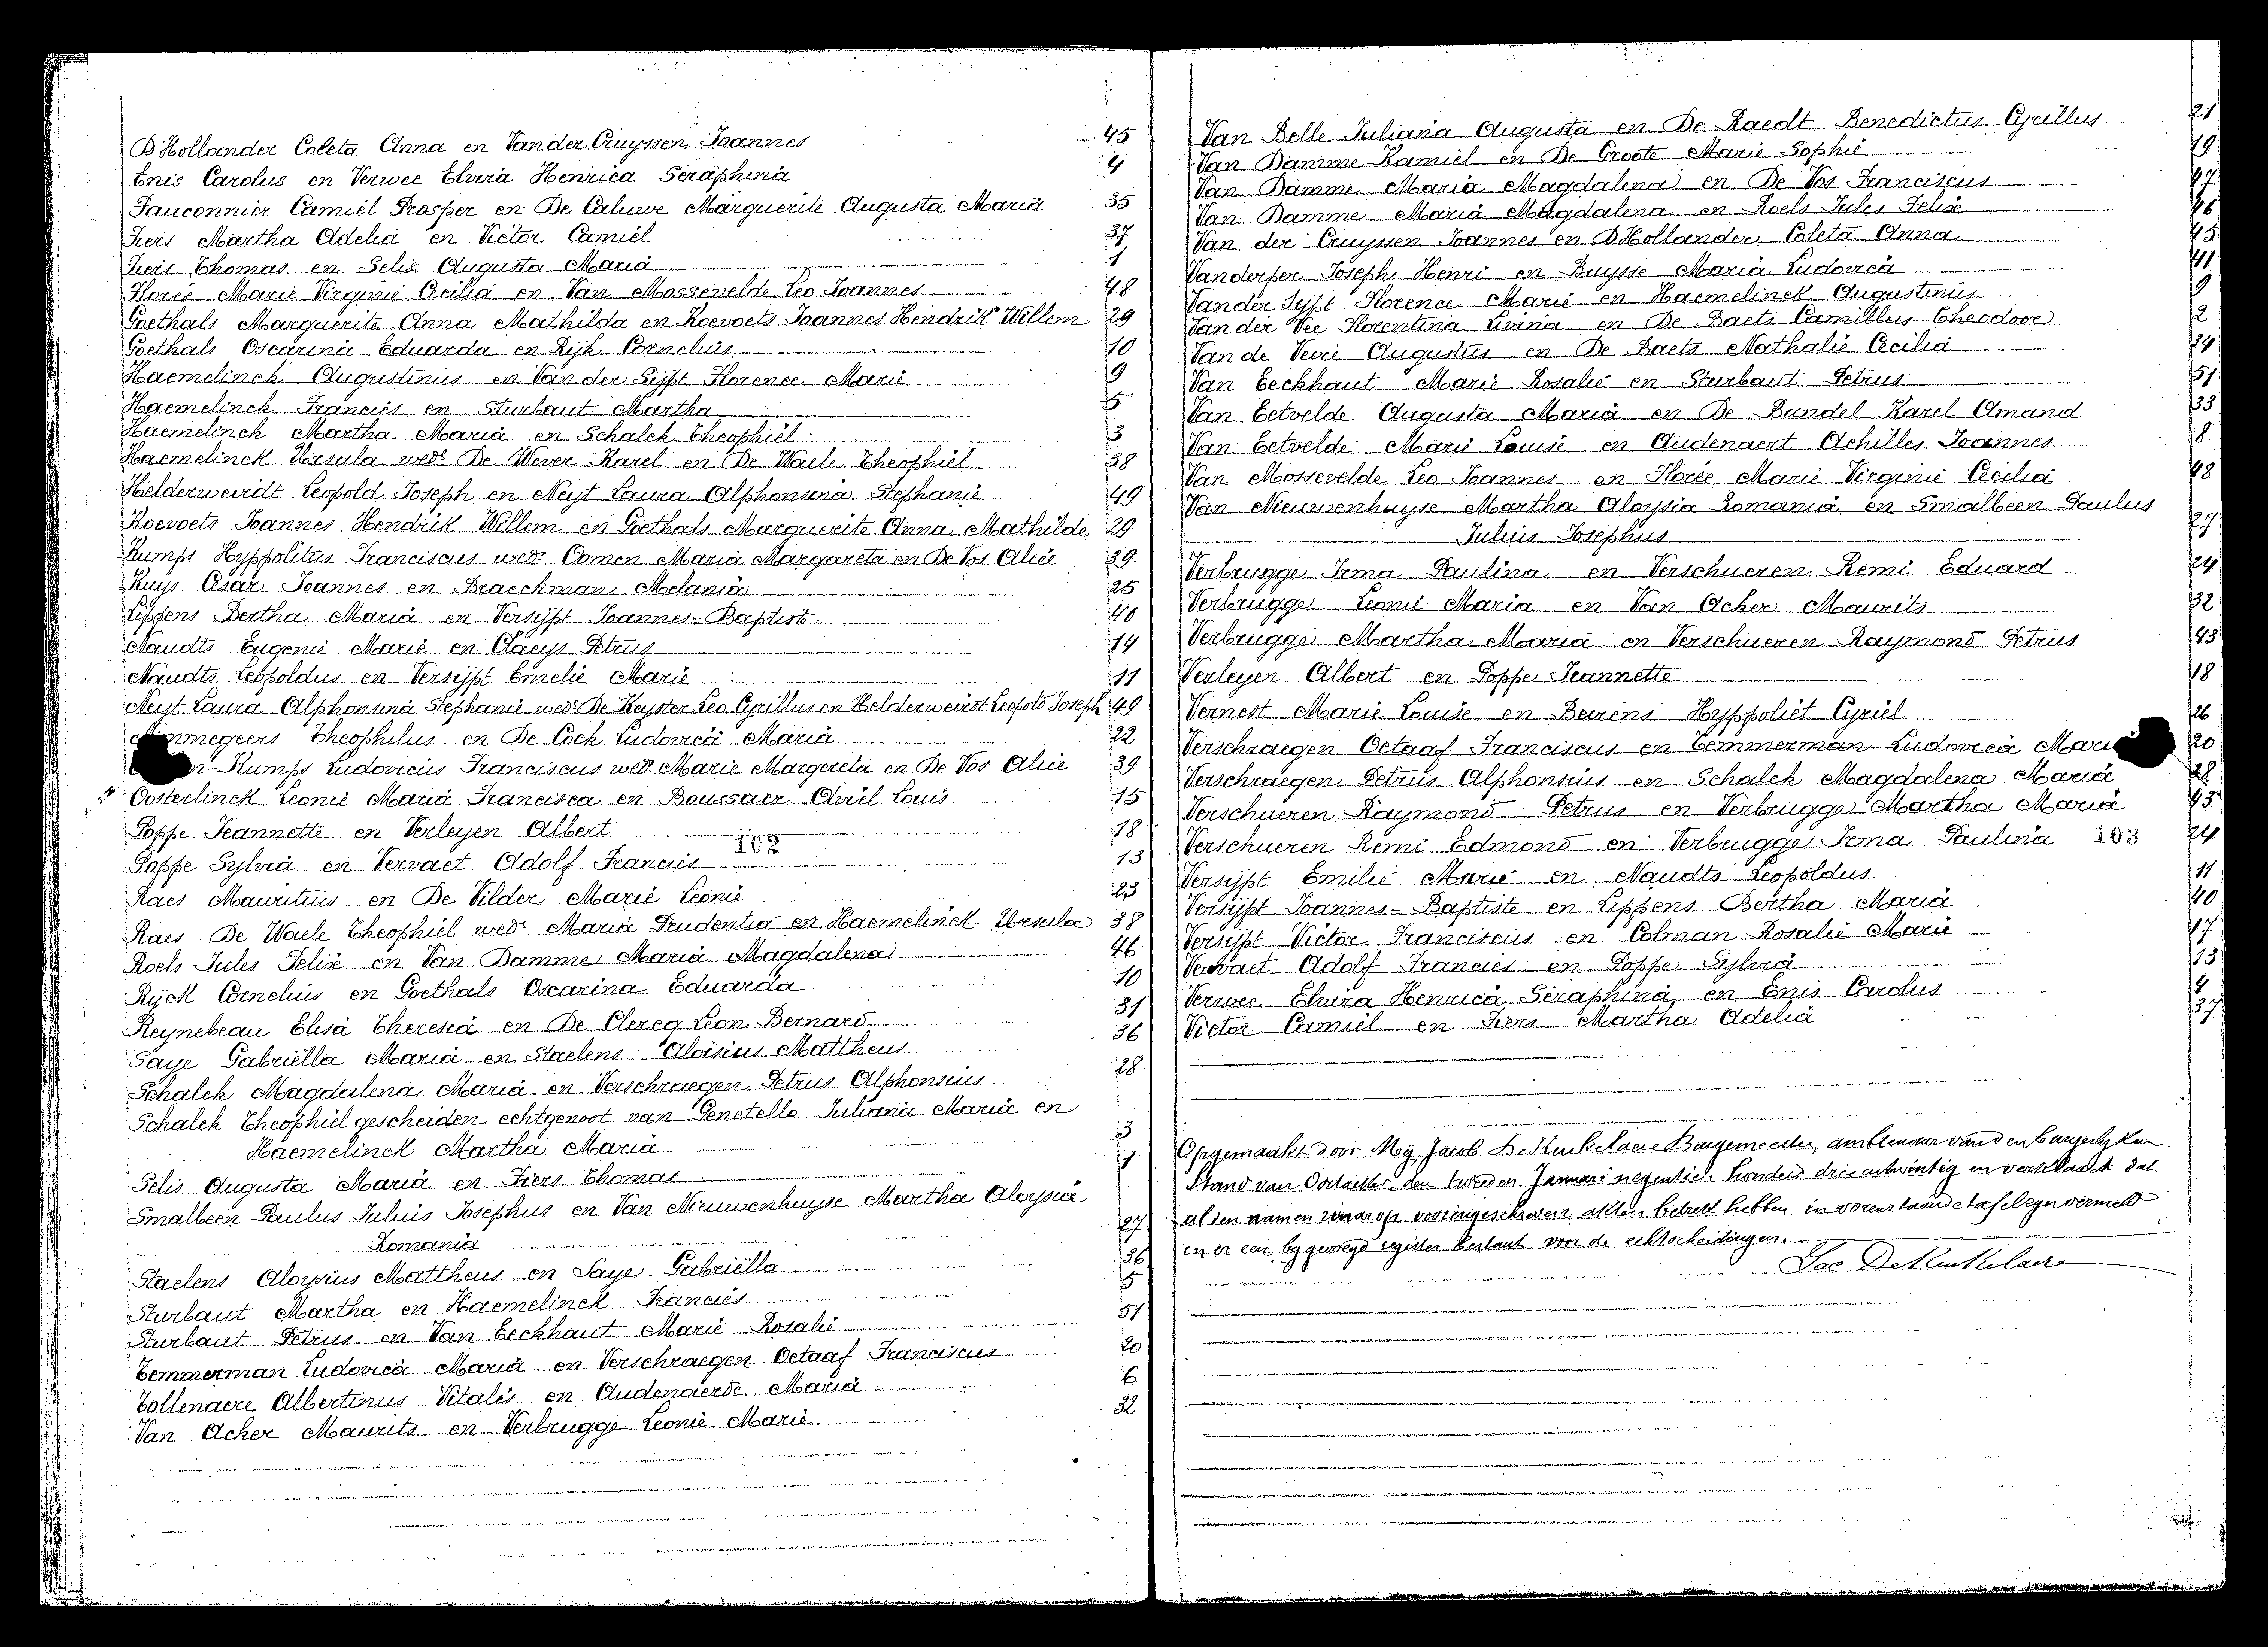 D'Hollander Coleta Anna en Vander Cruyssen Joannes 45
Enis Carolus en Verwee Elvira Henrica Seraphina 4
Fauconnier Camiel Prosper en De Caluwe Marguerite Augusta Maria 35
Fiers Martha Adelia en Victor Camiel 37
Fiers Thomas en Selis Augusta Maria 1
Florée Marie Virginie Cecilia en Van Mossevelde Leo Joannes 48
Goethals Marguerite Anna Mathilda en Koevoets Joannes Hendrik Willem 29
Goethals Oscarina Eduarda en Rijk Cornelius 10
Haemelinck Augustinus en Van der Sijpt Florence Marie 9
Haemelinck Francies en Sturbaut Martha 5
Haemelinck Martha Maria en Schalck Theophiel 3
Haemelinck Ursula wede De Wever Karel en De Waele Theophiel 38
Helderweirdt Leopold Joseph en Neyt Laura Alphonsina Stephanie 49
Koevoets Joannes Hendrik Willem en Goethals Marguerite Anna Mathilde 29
Kumps Hyppolitus Franciscus wedr Oomen Maria Margareta en De Vos Alice 39
Kuys Cesar Joannes en Braeckman Melania 25
Lippens Bertha Maria en Versijpt Joannes-Baptist 40
Naudts Eugenie Marie en Claeys Petrus 14
Naudts Leopoldus en Versijpt Emelie Marie 11
Neyt Laura Alphonsina Stephanie wede De Keyster Leo Cyrillus en Helderweirdt Leopold Joseph 49
Theophilus en De Cock Ludovica Maria 22
Kumps Ludovicus Franciscus wedr Marie Margereta en De Vos Alice 39
Oosterlinck Leonie Maria Francisca en Boussaer Aviel Louis 15
Poppe Jeannette en Verleyen Albert 18
102
Poppe Sylvia en Vervaet Adolf Francies 13
Raes Mauritius en De Vilder Marie Leonie 23
Raes - De Waele Theophiel wedr Maria Prudentia en Haemelinck Ursula 38
Roels Jules Felix en Van Damme Maria Magdalena 46
Rijck Cornelius en Goethals Oscarina Eduarda 10
Reynebeau Elisa Theresia en De Clercq Leon Bernard 31
Saye Gabriella Maria en Staelens Aloisius Mattheus 36
Schalck Magdalena Maria en Verschraegen Petrus Alphonsius 28
Schalck Theophiel gescheiden echtgenoot van Genetello Juliana Maria en
Haemelinck Martha Maria 3
Selis Augusta Maria en Fiers Thomas 1
Smalbeen Paulus Julius Josephus en Van Nieuwenhuyse Martha Aloysia
Romania 27
Staelens Aloysius Mattheus en Saye Gabriella 36
Sturbaut Martha en Haemelinck Francies 5
Sturbaut Petrus en Van Eeckhaut Marie Rosalie 51
Temmerman Ludovica Maria en Verschraegen Octaaf Franciscus 20
Tollenaere Albertinus Vitalis en Audenaerde Maria 6
Van Acker Maurits en Verbrugge Leonie Marie 32
Van Belle Juliana Augusta en De Raedt Benedictus Cyrillus 21
Van Damme Kamiel en De Groote Marie Sophie 19
Van Damme Maria Magdalena en De Vos Franciscus 47
Van Damme Maria Magdalena en Roels Jules Felix 46
Van der Cruyssen Joannes en D'Hollander Coleta Anna 45
Vanderper Joseph Henri en Buysse Maria Ludovica 41
Van der Sijpt Florence Marie en Haemelinck Augustinus 9
Van der Vee Florentina Livina en De Baets Camillus Theodoor 2
Van de Veire Augustus en De Baets Mathalie Cecilia 34
Van Eeckhaut Marie Rosalie en Sturbaut Petrus 51
Van Eetvelde Augusta Maria en De Bundel Karel Amand 33
Van Eetvelde Marie Louise en Audenaert Achilles Joannes 8
Van Mossevelde Leo Joannes en Florée Marie Virginie Cecilia 48
Van Nieuwenhuyse Martha Aloysia Romania en Smalbeen Paulus
Julius Josephus 27
Verbrugge Irma Paulina en Verschueren Remi Eduard 24
Verbrugge Leonie Maria en Van Acker Maurits 32
Verbrugge Martha Maria en Verschueren Raymond Petrus 43
Verleyen Albert en Poppe Jeannette 18
Vernest Marie Louise en Beirens Hyppoliet Cyriel 26
Verschraegen Octaaf Franciscus en Temmerman Ludovica 20
Verschraegen Petrus Alphonsius en Schalck Magdalena Maria 28
Verschueren Raymond Petrus en Verbrugge Martha Maria 43
Verschueren Remi Edmond en Verbrugge Irma Paulina 103 24
Versijpt Emilie Marie en Naudts Leopoldus 11
Versijpt Joannes-Baptiste en Lippens Bertha Maria 40
Versijpt Victor Franciscus en Colman Rosalie Marie 17
Vervaet Adolf Francies en Poppe Sylvia 13
Verwee Elvira Henrica Seraphina en Enis Carolus 4
Victor Camiel en Fiers Martha Adelia 37
Opgemaakt door Mij Jacob De Kinkelaere Burgemeester, ambtenaar van den burgerlyken
Stand van Oostacker, den tweeden Januari negentien honderd drie entwintig en verklaard dat
al den namen waarop vooreingeschreven akten betrek hebben in vorenstaande tafel zyn vermeld
en er een bygevoegd register bestaat van de echtscheidingen.
Jac De Kinkelaere